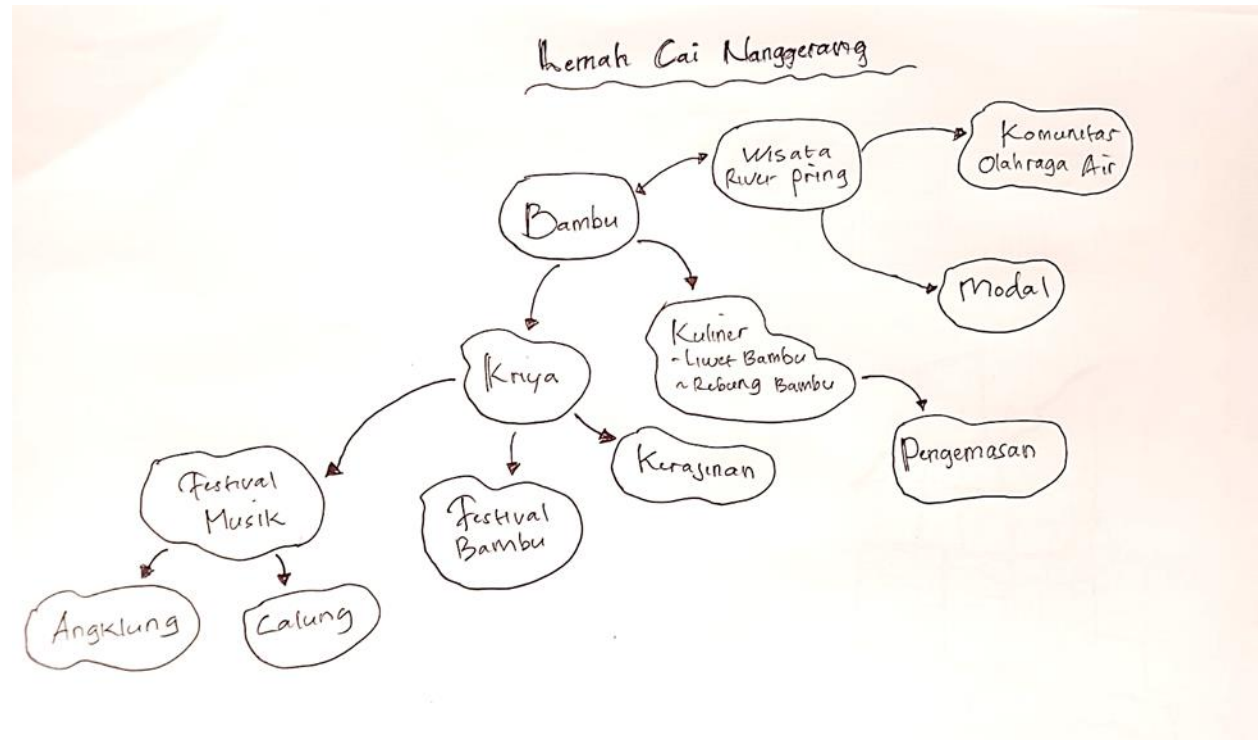 Lemah Cai Nanggerang
Wisata
River pring
Komunitas
Olahraga Air
Bambu
Modal
Kuliner
- Liwet Bambu
~ Rebung Bambu
Kriya
Pengemasan
Kerajinan
Festival
Musik
Festival
Bambu
Angklung
Calung